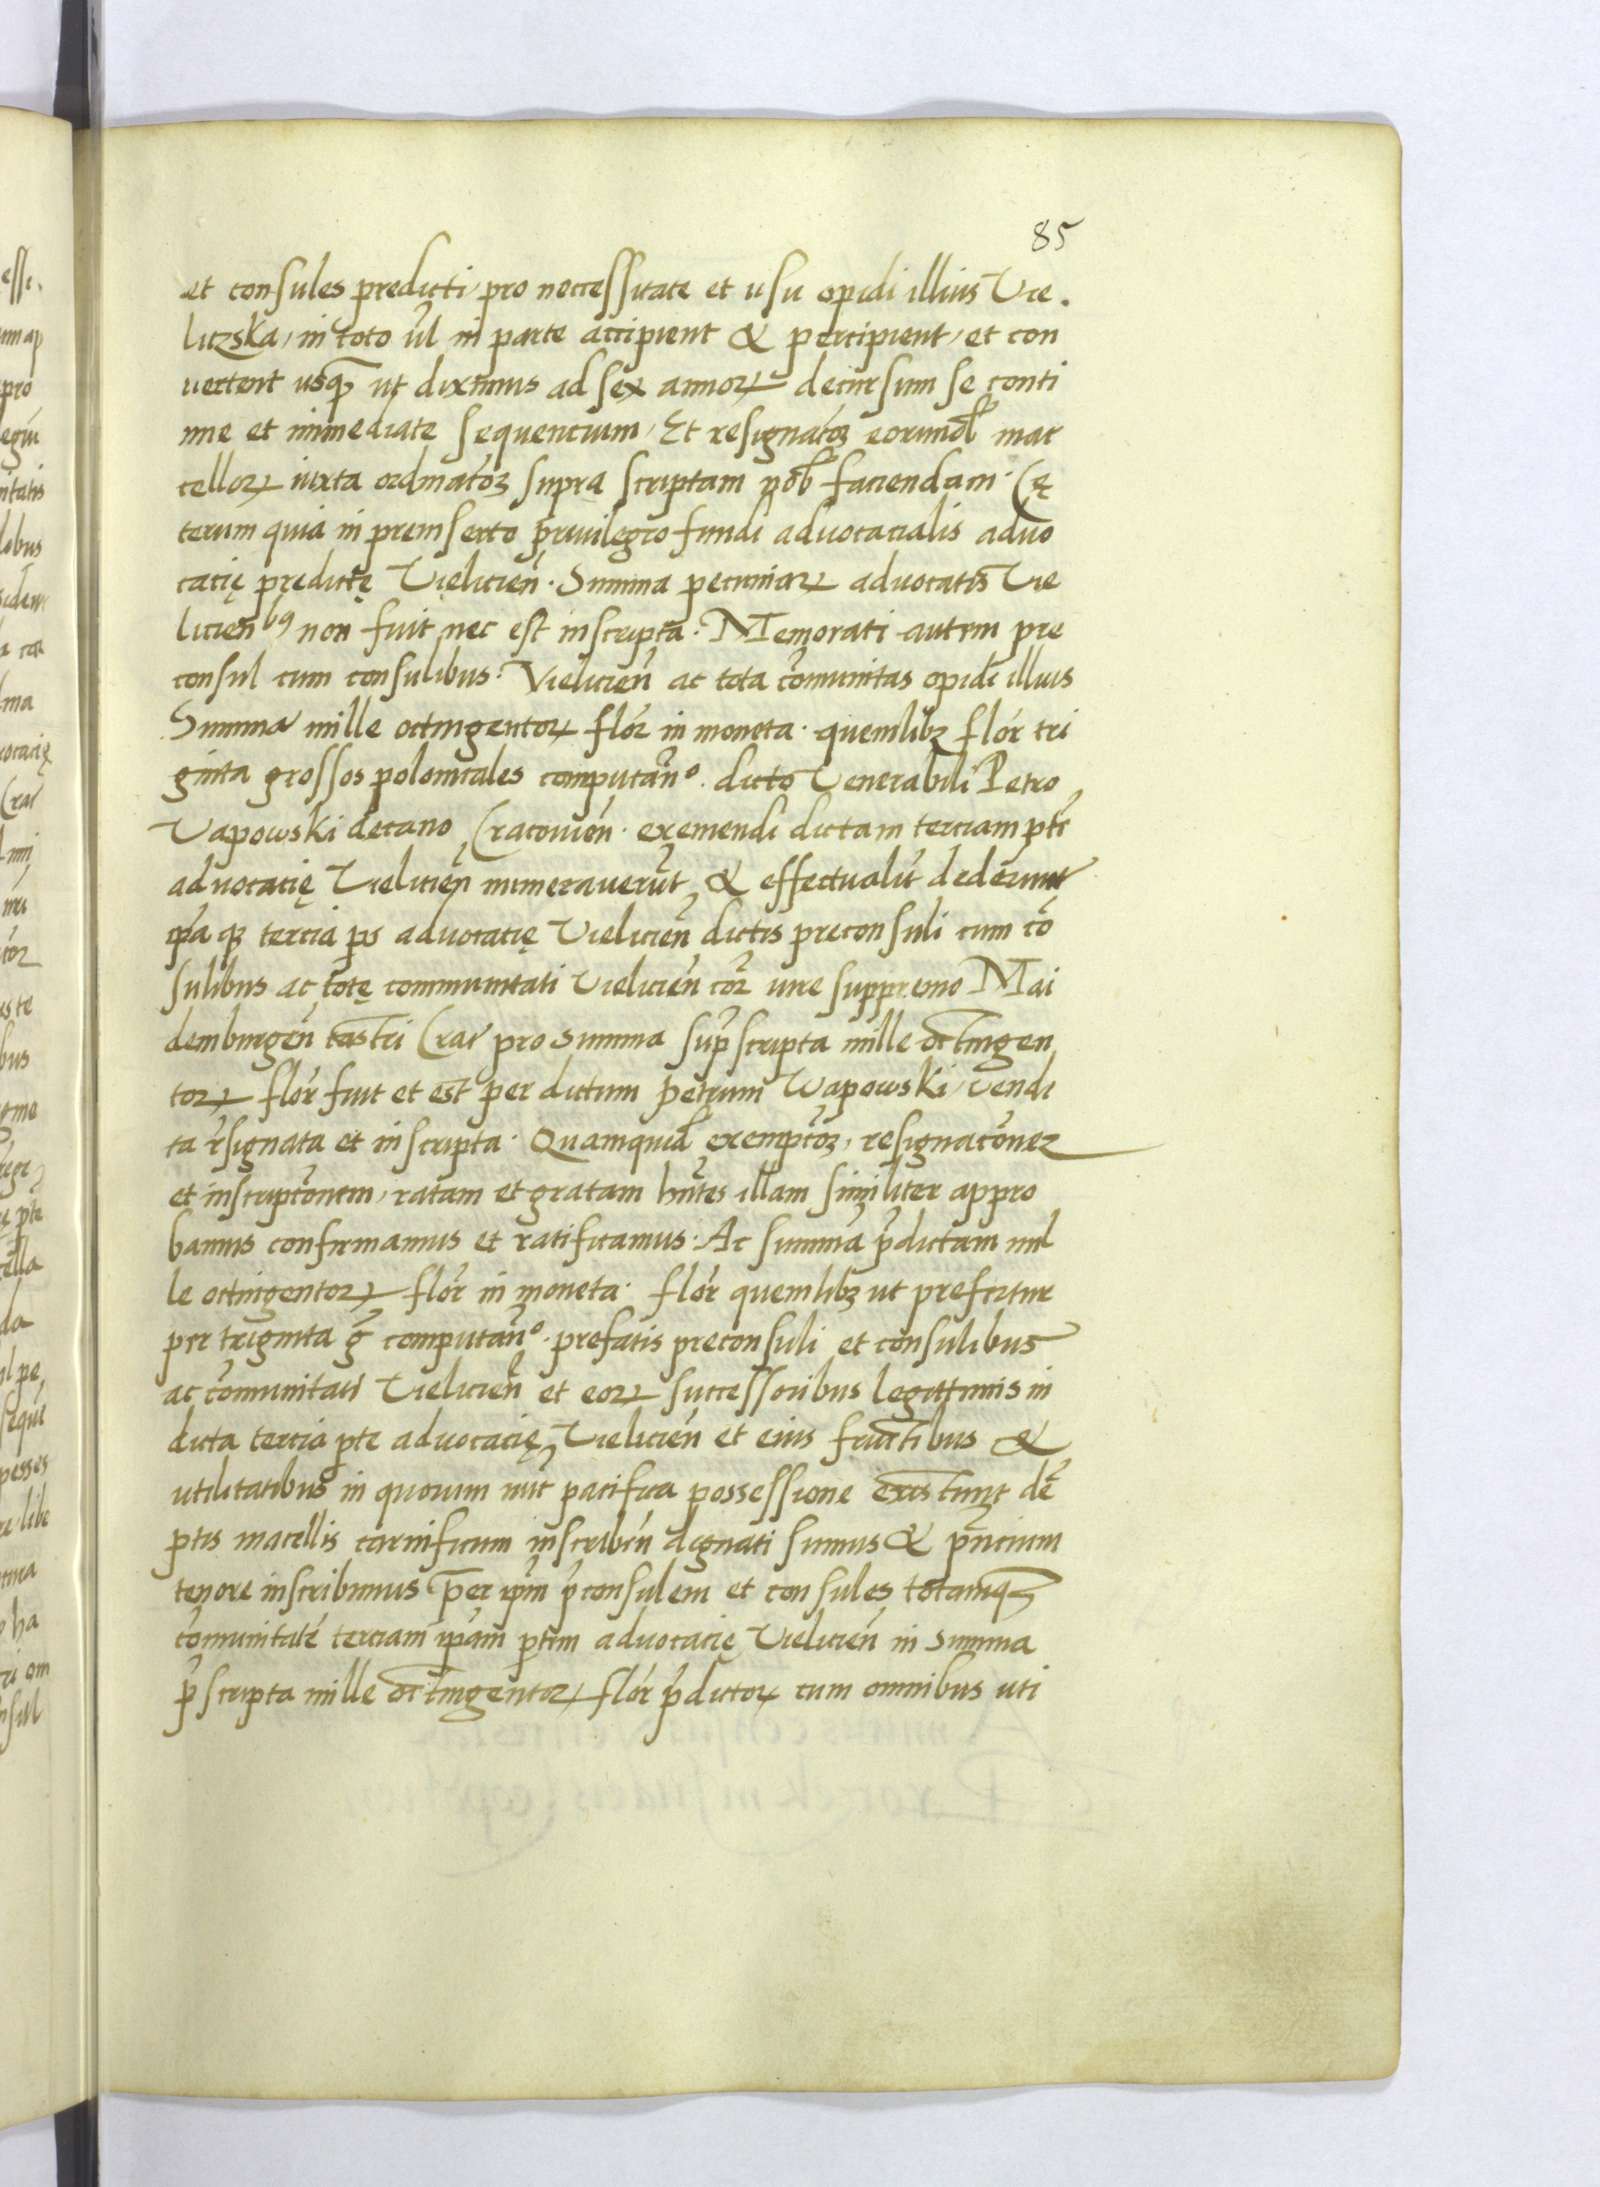 85
et consules predicti, pro neccessitate et usu opidi illius Vie.
liczska, in toto vl in parte accipient & percipient, et con
vertent usq ut diximus ad sex annoꝝ decursum se conti
nue et immediate sequencium, Et resignatōꝫ eorundē mac
celloꝝ iuxta ordinatōꝫ supra scriptam nob faciendam. Cę
terum quia in preinserto privilegio fundi advocacialis advo
cacię prędictę Vielicień. Summa pecuniaꝝ advocatis Vie
licień bꝰ non fuit nec est inscripta. Memorati autem pre
consul cum consulibus Vielicień ac tota cōmunitas opidi illius
Summa mille octingentoꝝ flór in moneta. quemlibꝫ flór tri
ginta grossos polonicales computańo. dicto Venerabili Petro
Vapowski decano Cracovień. exemendi dictam terciam ptē
advocacię Vielicień numeraverūt & effectualit̄ dederunt
ip̄a qꝫ tercia ps advocacię Vielicień dictis preconsuli cum cō
sulibus ac totę communitati Vielicień coȓ iure suppremo Mai
demburgeń castri Crac̄ pro summa sup̄scripta mille octingen
toꝝ flór fuit et est per dictum Petrum Wapowski, vendi
ta r̄signata et inscripta. Quamquid exemptōꝫ, resignatōneꝫ
et inscriptōnem, ratam et gratam hn̄tes illam similiter appro
bamus confirmamus et ratificamus. Ac summā p̄dictam mil
le octingentoꝝ flór in moneta. flór quemlibꝫ ut prefertur
per triginta g̃ computańo. prefatis preconsuli et consulibus
ac cōmunitati Vielicień et eoꝝ successoribus legittimis in
dicta tercia pte advocacię Vielicień et eius fructibus &
utilitatibus in quorum nūc pacifica possessione existunt dē
ptis macellis carnificum inscribeń dignati sumus & pn̄cium
tenore inscribimus per ip̄m p̄consulem et consules totamq
cōmunitatē terciam ip̄am ptem advocacię Vielicień in summa
p̄scripta mille octingentoꝝ flór p̄dictoꝝ cum omnibus uti